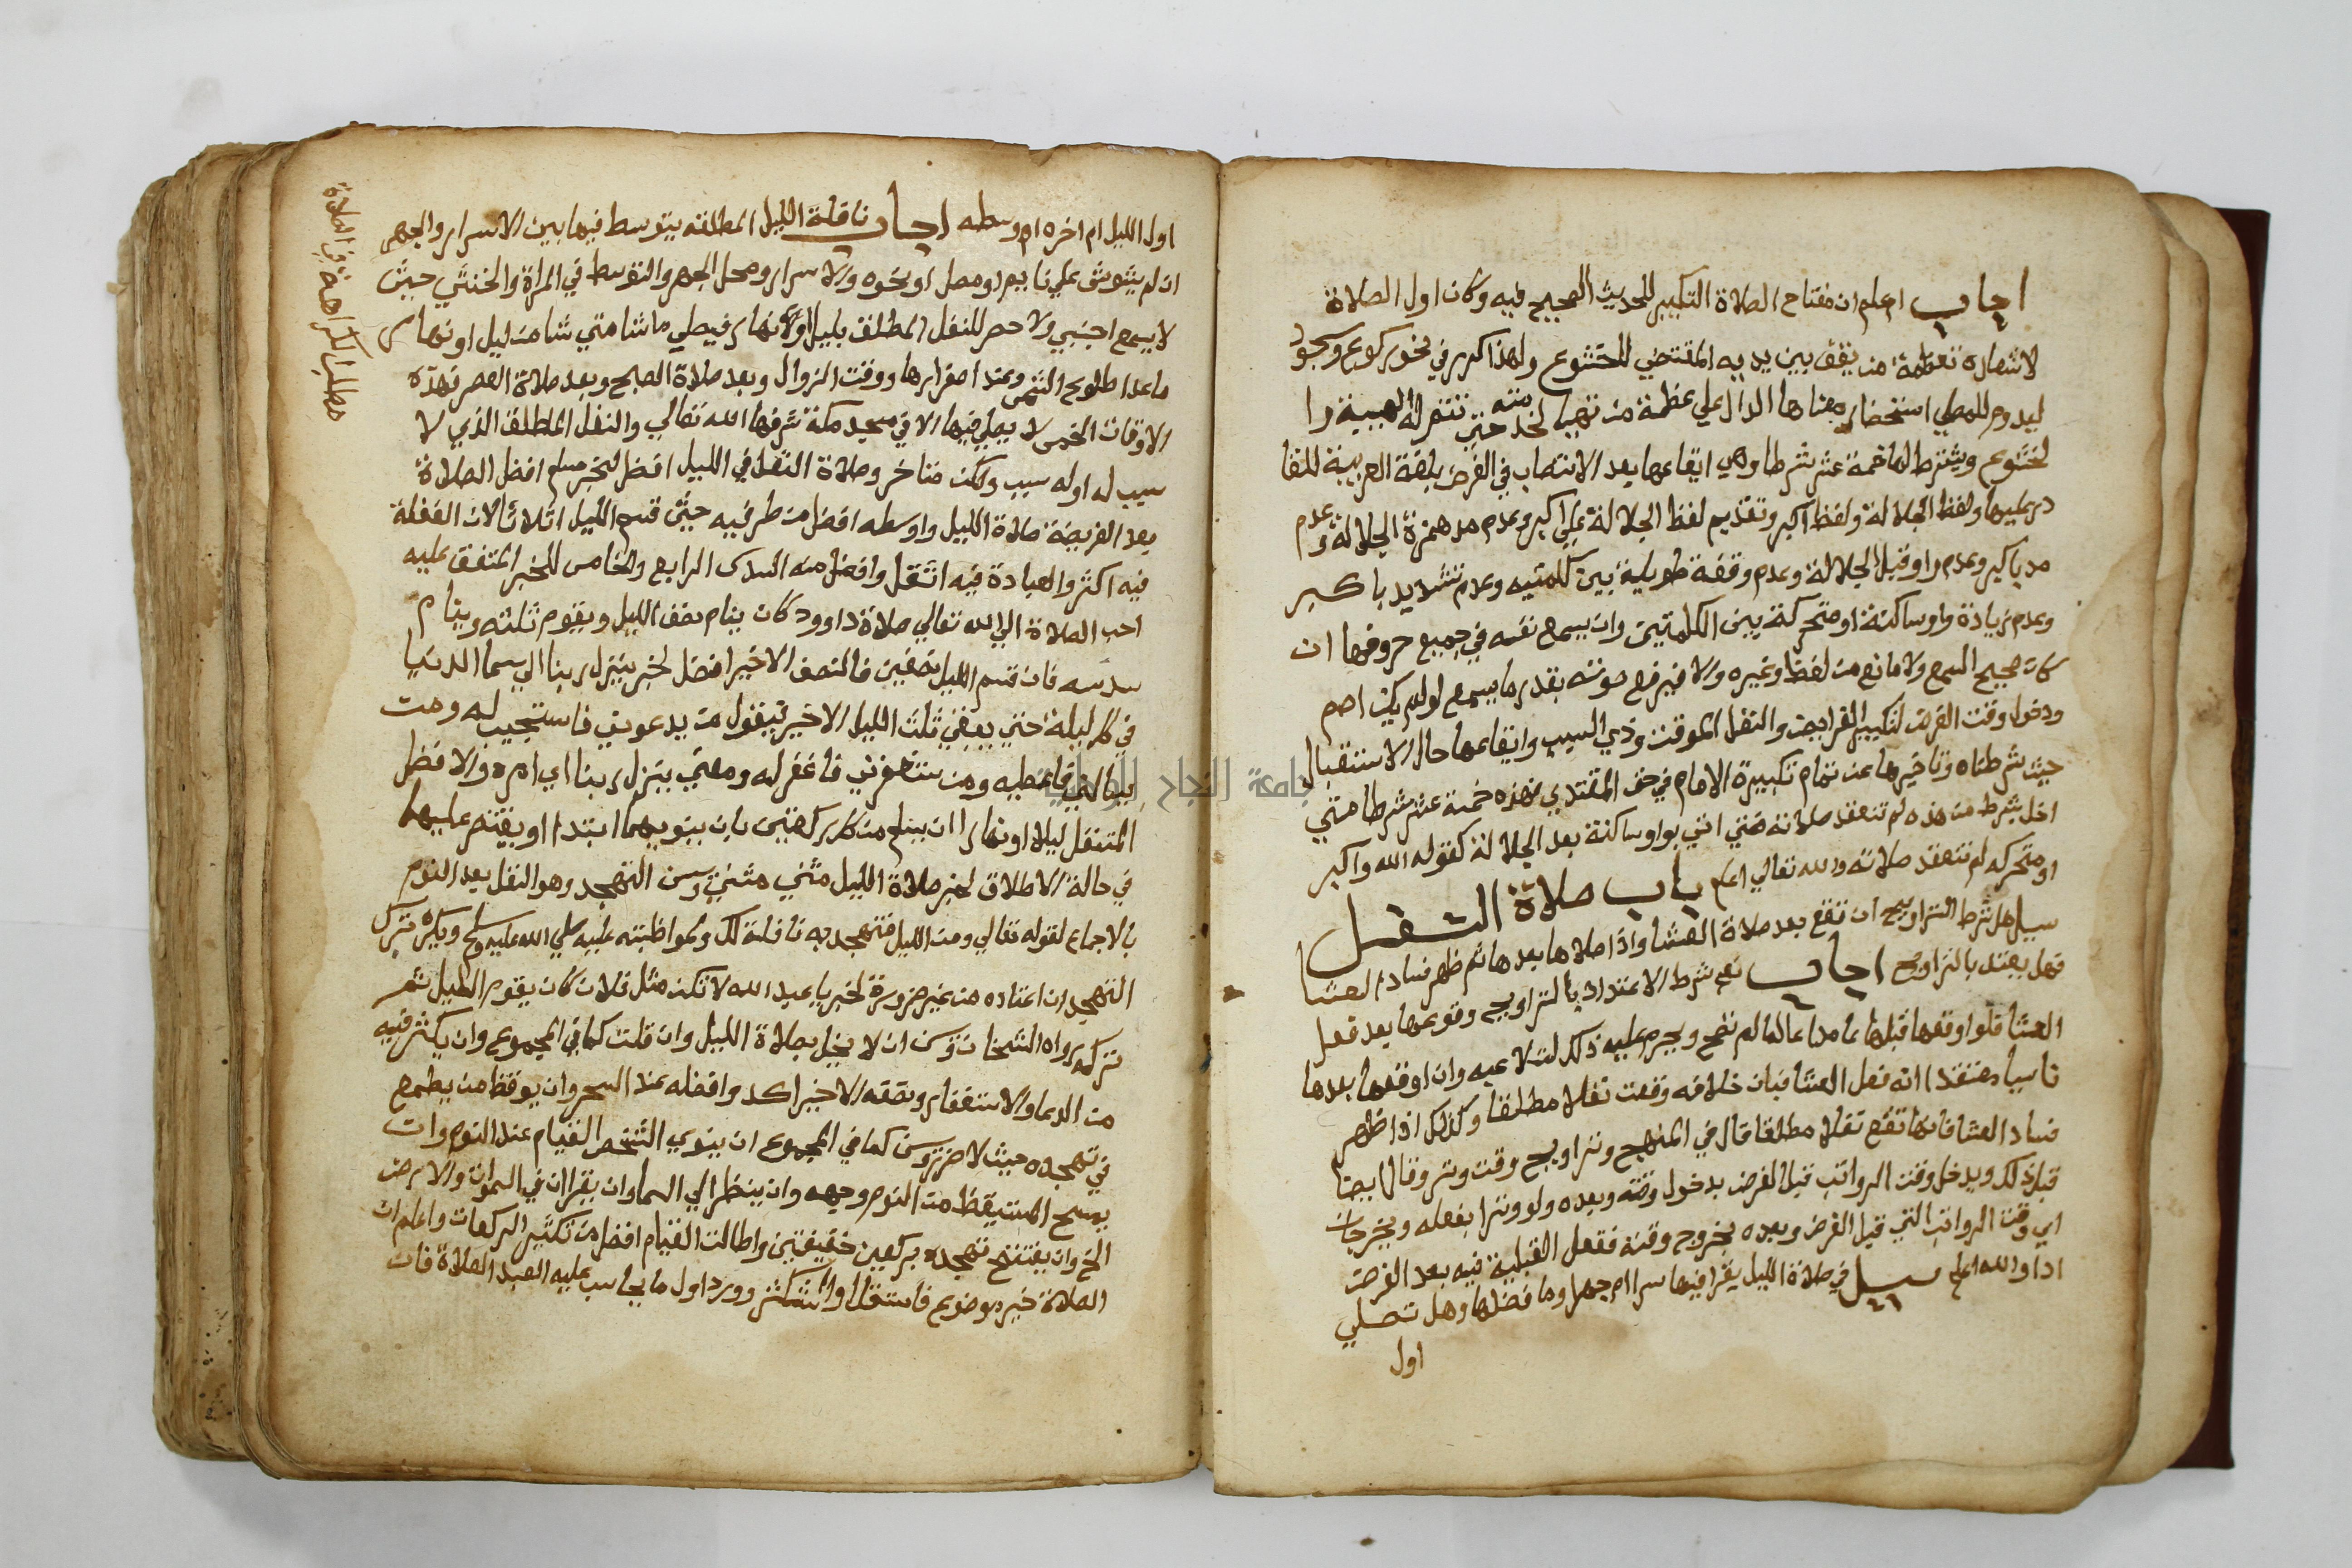 اجاب اعلم ان مفتاح الصلاة التكبير للحديث الصحيح فيه وكان اول الصلاة
لاشعاره تعظيمة من يقف بين يديه المقتضي للخشوع ولهذا كرر في نحو ركوع وسجود
ليدوم للمصلي استحضار معناها الدال علي عظمة من تهيا لخدمته حتي تتم له الهيبة وا
لخشوع ويشترط لها خمسة عشر شرطا وهي ايقاعها بعد الانتصاب في الفرض بلغة العربية للقا
در عليها ولفظ الجلالة ولفظ اكبر وتقديم لفظ الجلالة علي اكبر وعدم مد همزة الجلالة وعدم
مد باكبر وعدم واو قبل الجلالة وعدم وقفة طويلة بين كلمتيه وعدم تشديد باكبر
وعدم زيادة واو ساكنة او متحركة بين الكلمتين وان يسمع نفسه في جميع حروفها ان
كان صحيح السمع ولا مانع من لغط وغيره والا فيرفع صوته بقدر ما يسمع لو لم يكن اصم
ودخول وقت الفرض لتكبير الفرايض والنفل الموقت وذي السبب وايقاعها حال الاستقبال
حيث شرطناه وتاخيرها عن تمام تكبيرة الامام في حق المقتدي فهذه خمسة عشر شرطا متي
اخل بشرط من هذه لم تنعقد صلاته فمتي اتي بواو ساكنة بعد الجلالة كقوله الله واكبر
او متحركه لم تنعقد صلاته والله تعالي اعلم باب صلاة النفل
سيل هل شرط التراويح ان تقع بعد صلاة العشا واذا صلاها بعدها ثم ظهر فساد العشا
فهل يعتد بالتراويح اجاب نعم شرط الاعتداد بالتراويح وقوعها بعد فعل
العشا فلو اوقعها قبلها عامدا عالما لم تصح ويحرم عليه ذلك لتلاعبه وان اوقعها بعدها
ناسيا معتقدا انه فعل العشا فبان خلافه وقعت نفلا مطلقا وكذلك اذا ظهر
فساد العشا فانها تقع نفلا مطلقا قال في المنهج وتراويح وقت وتر وقال ايضا
قبل ذلك ويدخل وقت الرواتب قبل الفرض بدخول وقته وبعده ولو وترا بفعله ويخرجان
اي وقت الرواتب التي قبل الفرض وبعده بخروج وقته ففعل القبلية فيه بعد الفرض
ادا والله اعلم سيل في صلاة الليل يقرا فيها سرا ام جهرا وما فضلها وهل تصلي
اول
اول الليل ام اخره ام وسطه اجاب نافلة الليل المطلقه يتوسط فيها بين الاسرار والجهر
ان لم يشوش علي نايم او مصل او نحوه والا سرار ومحل الجهر والتوسط في المراة والخنثي حيث
لا يسمع اجنبي ولا حصر للنفل المطلق بليل ولا نهار فيصلي ما شا متي شا من ليل او نهار
ما عدا طلوع الشمس وعند اصفرارها ووقت الزوال وبعد صلاة الصبح وبعد صلاة العصر فهذه
الاوقات الخمس لا يصلي فيها الا في مسجد مكة شرفها الله تعالي والنفل المطلق الذي لا
سبب له او له سبب ولكن متاخر وصلاة النفل في الليل افضل لخبر مسلم افضل الصلاة
بعد الفريضة صلاة الليل واوسطه افضل من طرفيه حيث قسم الليل اثلاثا لان الغفلة
فيه اكثر والعبادة فيه اثقل وافضل منه السدس الرابع والخامس للخبر المتفق عليه
احب الصلاة الي الله تعالي صلاة داوود كان ينام نصف الليل ويقوم ثلثه وينام
سدسه فان قسم الليل نصفين فالنصف الاخير افضل لخبر ينزل ربنا الي سما الدنيا
في كل ليلة حتي يبقي ثلث الليل الاخير فيقول من يدعوني فاستجيب له ومن
يسالني فاعطيه ومن يستغفرني فاغفر له ومعني ينزل ربنا اي امره والافضل
المتنفل ليلا او نهارا ان يسلم من كل ركعتين بان ينويهما ابتدا او يقتصر عليهما
في حالة الاطلاق لخبر صلاة الليل مثني مثني وسن التهجد وهو النفل بعد النوم
بالاجماع لقوله تعالي ومن الليل فتهجد به نافلة لك ولمواظبته عليه صلي الله عليه وسلم ويكره ترك
التهجد ان اعتاده من غير ضرورة لخبر يا عبد الله لا تكن مثل فلان كان يقوم الليل ثم
تركه رواه الشيخان وسن ان لا يخل بصلاة الليل وان قلت كما في المجموع وان يكثر فيه
من الدعا والاستغفار ونصفه الاخير اكد وافضله عند السحر وان يوقظ من يطمع
في تهجده حيث لا ضرر وسن كما في المجموع ان ينوي الشخص القيام عند النوم وان
يمسح المستيقظ من النوم وجهه وان ينظر الي السما وان يقرا ان في السموات والارض
الخ وان يفتتح تهجده بركعتين خفيفتين واطالت القيام افضل من تكثير الركعات واعلم ان
الصلاة خير موضوع فاستقل او استكثر وورد اول ما يحاسب عليه العبد الصلاة فان
مطلب الكراهة في الصلاة
جامعة النجاح الوطنية